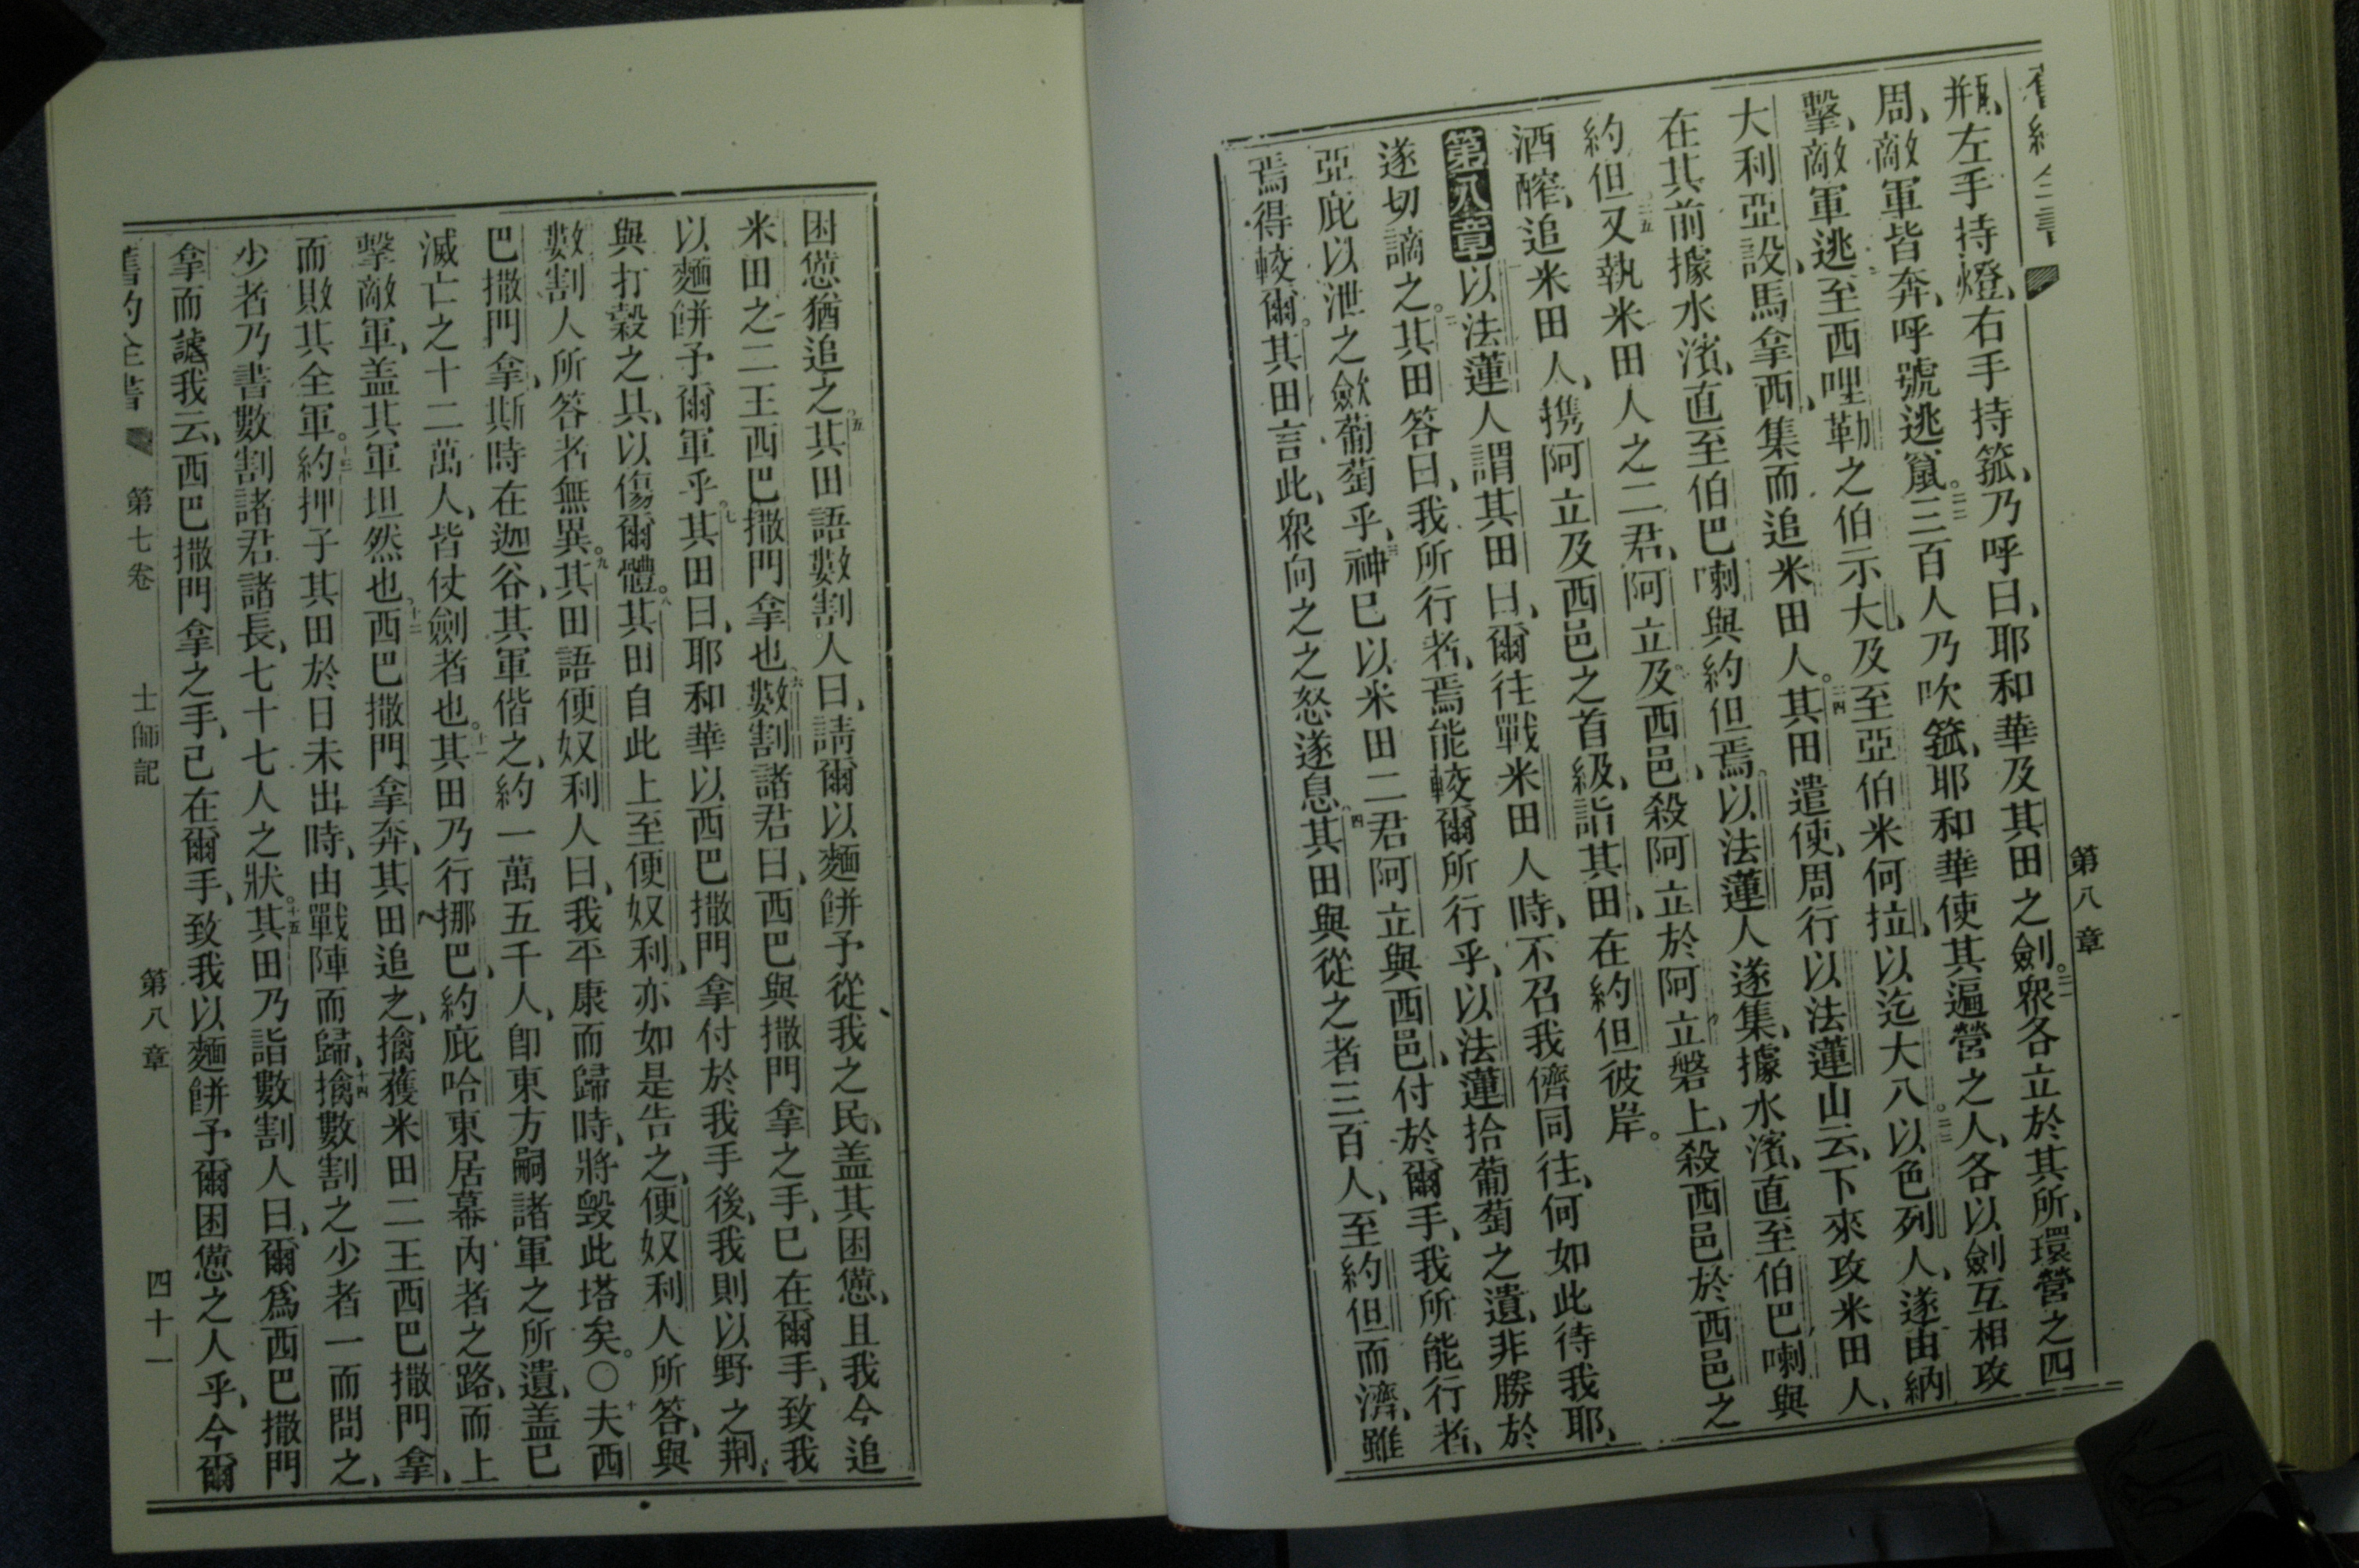 舊約全書
第八章
瓶、左手持燈、右手持箛、乃呼曰、耶和華及其田之劍。二一衆各立於其所、環營之四
周、敵軍皆奔、呼號逃竄。二二三百人乃吹箛、耶和華使其遍營之人、各以劍互相攻
擊、敵軍逃至西哩勒之伯示大、及至亞伯米何拉、以迄大八。二三以色列人、遂由納
大利亞設、馬拿西、集而追米田人。二四其田遣使、周行以法蓮山云、下來攻米田人、
在其前據水濱、直至伯巴喇與約但焉。以法蓮人遂集、據水濱、直至伯巴喇與
約但、二五又執米田人之二君、阿立及西邑、殺阿立於阿立磐上、殺西邑於西邑之
酒醡、追米田人、携阿立及西邑之首級、詣其田、在約但彼岸。
第八章以法蓮人謂其田曰、爾往戰米田人時、不召我儕同往、何如此待我耶、
遂切謫之。二其田答曰、我所行者、焉能較爾所行乎、以法蓮拾葡萄之遺、非勝於
亞庇以泄之歛葡萄乎、三神已以米田二君阿立與西邑、付於爾手、我所能行者、
焉得較爾。其田言此、衆向之之怒遂息。四其田與從之者三百人、至約但而濟、雖
困憊猶追之、五其田語數割人曰、請爾以麵餅予從我之民、盖其困憊、且我今追
米田之二王西巴撒門拿也。六數割諸君曰、西巴與撒門拿之手、已在爾手、致我
以麵餅予爾軍乎。七其田曰、耶和華以西巴撒門拿付於我手後、我則以野之荆、
與打穀之具、以傷爾體。八其田自此上至便奴利、亦如是告之、便奴利人所答、與
數割人所答者無異。九其田語便奴利人曰、我平康而歸時、將毀此塔矣。〇十夫西
巴撒門拿、斯時在迦谷、其軍偕之、約一萬五千人、卽東方嗣諸軍之所遺、盖已
滅亡之十二萬人、皆仗劍者也。十一其田乃行挪巴、約庇哈東居幕內者之路、而上
擊敵軍、盖其軍坦然也、十二西巴撒門拿奔、其田追之、擒獲米田二王西巴撒門拿、
而敗其全軍。十三約押子其田於日未出時、由戰陣而歸、十四擒數割之少者一而問之、
少者乃書數割諸君諸長、七十七人之狀。十五其田乃詣數割人曰、爾爲西巴撒門
拿而謔我云、西巴撒門拿之手、已在爾手、致我以麵餅予爾困憊之人乎、今爾
舊約全書 第七卷 士師記 第八章 四十一